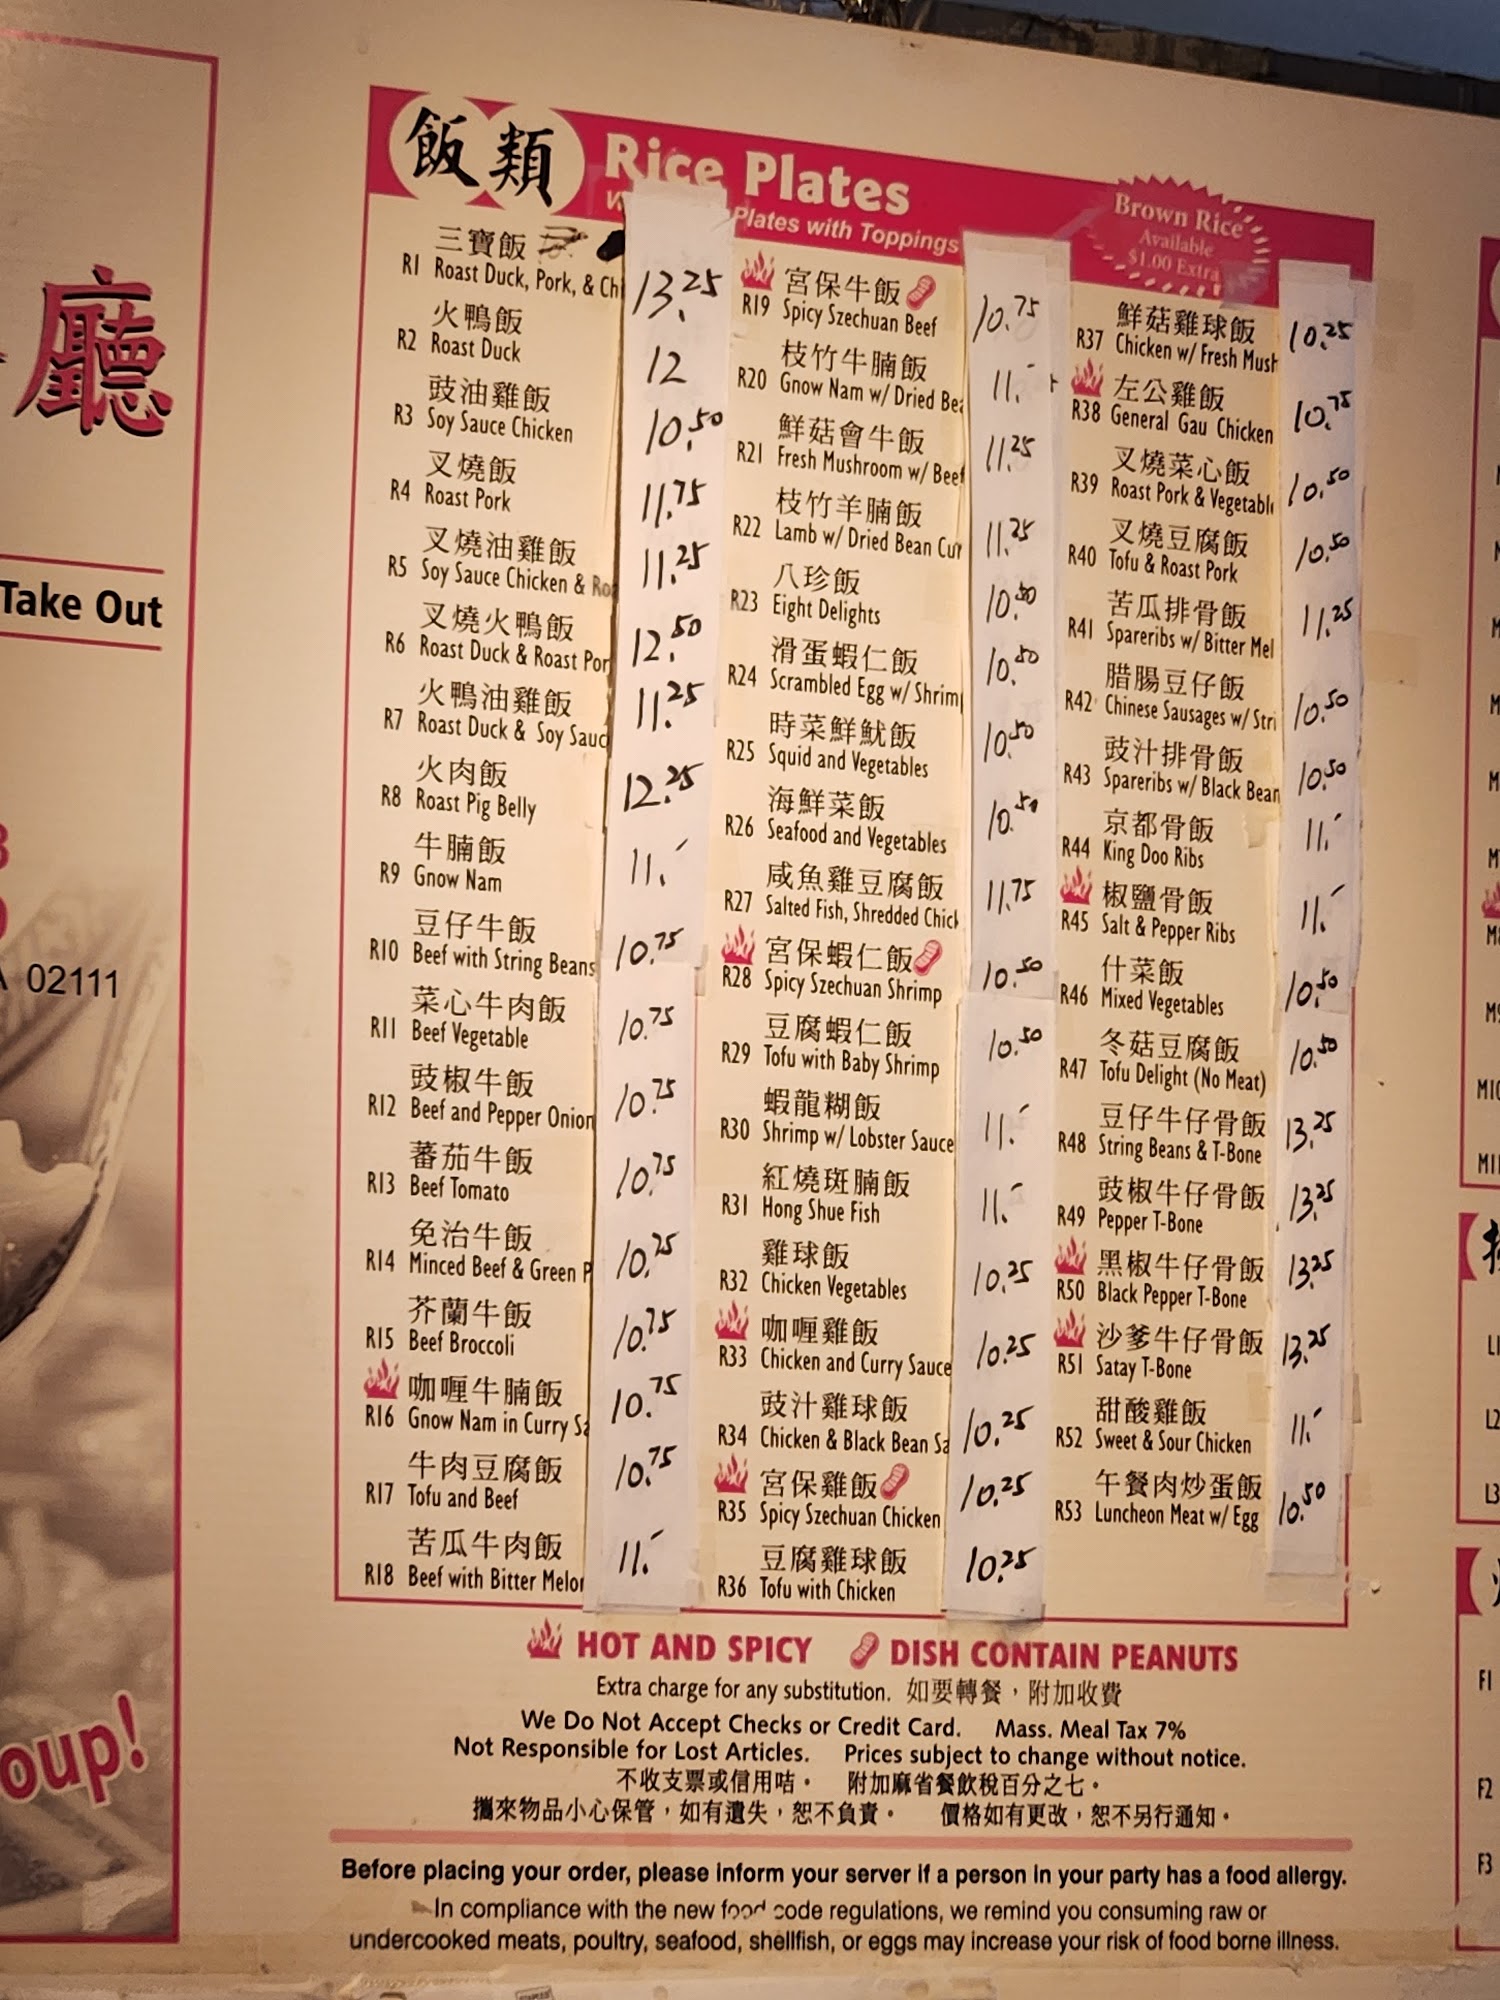 廳
Take Out
A 02111
oup!
飯類 Rice Plates
Plates with Toppings
Brown Rice
Available
$1.00 Extra
三寶飯
R1 Roast Duck, Pork, & Ch 13.25
火鴨飯
R2 Roast Duck 12
豉油雞飯
R3 Soy Sauce Chicken 10.50
叉燒飯
R4 Roast Pork 11.75
叉燒油雞飯
R5 Soy Sauce Chicken & Ro 11.25
叉燒火鴨飯
R6 Roast Duck & Roast Por 12.50
火鴨油雞飯
R7 Roast Duck & Soy Sauc 11.25
火肉飯
R8 Roast Pig Belly 12.25
牛腩飯
R9 Gnow Nam 11.-
豆仔牛飯
R10 Beef with String Beans 10.75
菜心牛肉飯
R11 Beef Vegetable 10.75
豉椒牛飯
R12 Beef and Pepper Onion 10.75
蕃茄牛飯
R13 Beef Tomato 10.75
免治牛飯
R14 Minced Beef & Green P 10.75
芥蘭牛飯
R15 Beef Broccoli 10.75
咖喱牛腩飯
R16 Gnow Nam in Curry Sa 10.75
牛肉豆腐飯
R17 Tofu and Beef 10.75
苦瓜牛肉飯
R18 Beef with Bitter Melon 11.-
宮保牛飯
R19 Spicy Szechuan Beef 10.75
枝竹牛腩飯
R20 Gnow Nam w/ Dried Bea 11.-
鮮菇會牛飯
R21 Fresh Mushroom w/ Beef 11.25
枝竹羊腩飯
R22 Lamb w/ Dried Bean Cur 11.25
八珍飯
R23 Eight Delights 10.50
滑蛋蝦仁飯
R24 Scrambled Egg w/ Shrim 10.50
時菜鮮魷飯
R25 Squid and Vegetables 10.50
海鮮菜飯
R26 Seafood and Vegetables 10.50
咸魚雞豆腐飯
R27 Salted Fish, Shredded Chick 11.75
宮保蝦仁飯
R28 Spicy Szechuan Shrimp 10.50
豆腐蝦仁飯
R29 Tofu with Baby Shrimp 10.50
蝦龍糊飯
R30 Shrimp w/ Lobster Sauce 11.-
紅燒斑腩飯
R31 Hong Shue Fish 11.-
雞球飯
R32 Chicken Vegetables 10.25
咖喱雞飯
R33 Chicken and Curry Sauce 10.25
豉汁雞球飯
R34 Chicken & Black Bean Sa 10.25
宮保雞飯
R35 Spicy Szechuan Chicken 10.25
豆腐雞球飯
R36 Tofu with Chicken 10.25
鮮菇雞球飯
R37 Chicken w/ Fresh Mush 10.25
左公雞飯
R38 General Gau Chicken 10.75
叉燒菜心飯
R39 Roast Pork & Vegetable 10.50
叉燒豆腐飯
R40 Tofu & Roast Pork 10.50
苦瓜排骨飯
R41 Spareribs w/ Bitter Mel 11.25
腊腸豆仔飯
R42 Chinese Sausages w/ Stri 10.50
豉汁排骨飯
R43 Spareribs w/ Black Bean 10.50
京都骨飯
R44 King Doo Ribs 11.-
椒鹽骨飯
R45 Salt & Pepper Ribs 11.-
什菜飯
R46 Mixed Vegetables 10.50
冬菇豆腐飯
R47 Tofu Delight (No Meat) 10.50
豆仔牛仔骨飯
R48 String Beans & T-Bone 13.25
豉椒牛仔骨飯
R49 Pepper T-Bone 13.25
黑椒牛仔骨飯
R50 Black Pepper T-Bone 13.25
沙爹牛仔骨飯
R51 Satay T-Bone 13.25
甜酸雞飯
R52 Sweet & Sour Chicken 11.-
午餐肉炒蛋飯
R53 Luncheon Meat w/ Egg 10.50
HOT AND SPICY DISH CONTAIN PEANUTS
Extra charge for any substitution. 如要轉餐，附加收費
We Do Not Accept Checks or Credit Card. Mass. Meal Tax 7%
Not Responsible for Lost Articles. Prices subject to change without notice.
不收支票或信用咭。 附加麻省餐飲稅百分之七。
攜來物品小心保管，如有遺失，恕不負責。 價格如有更改，恕不另行通知。
Before placing your order, please inform your server if a person in your party has a food allergy.
In compliance with the new food code regulations, we remind you consuming raw or
undercooked meats, poultry, seafood, shellfish, or eggs may increase your risk of food borne illness.
M10
L2
L3
F1
F2
F3